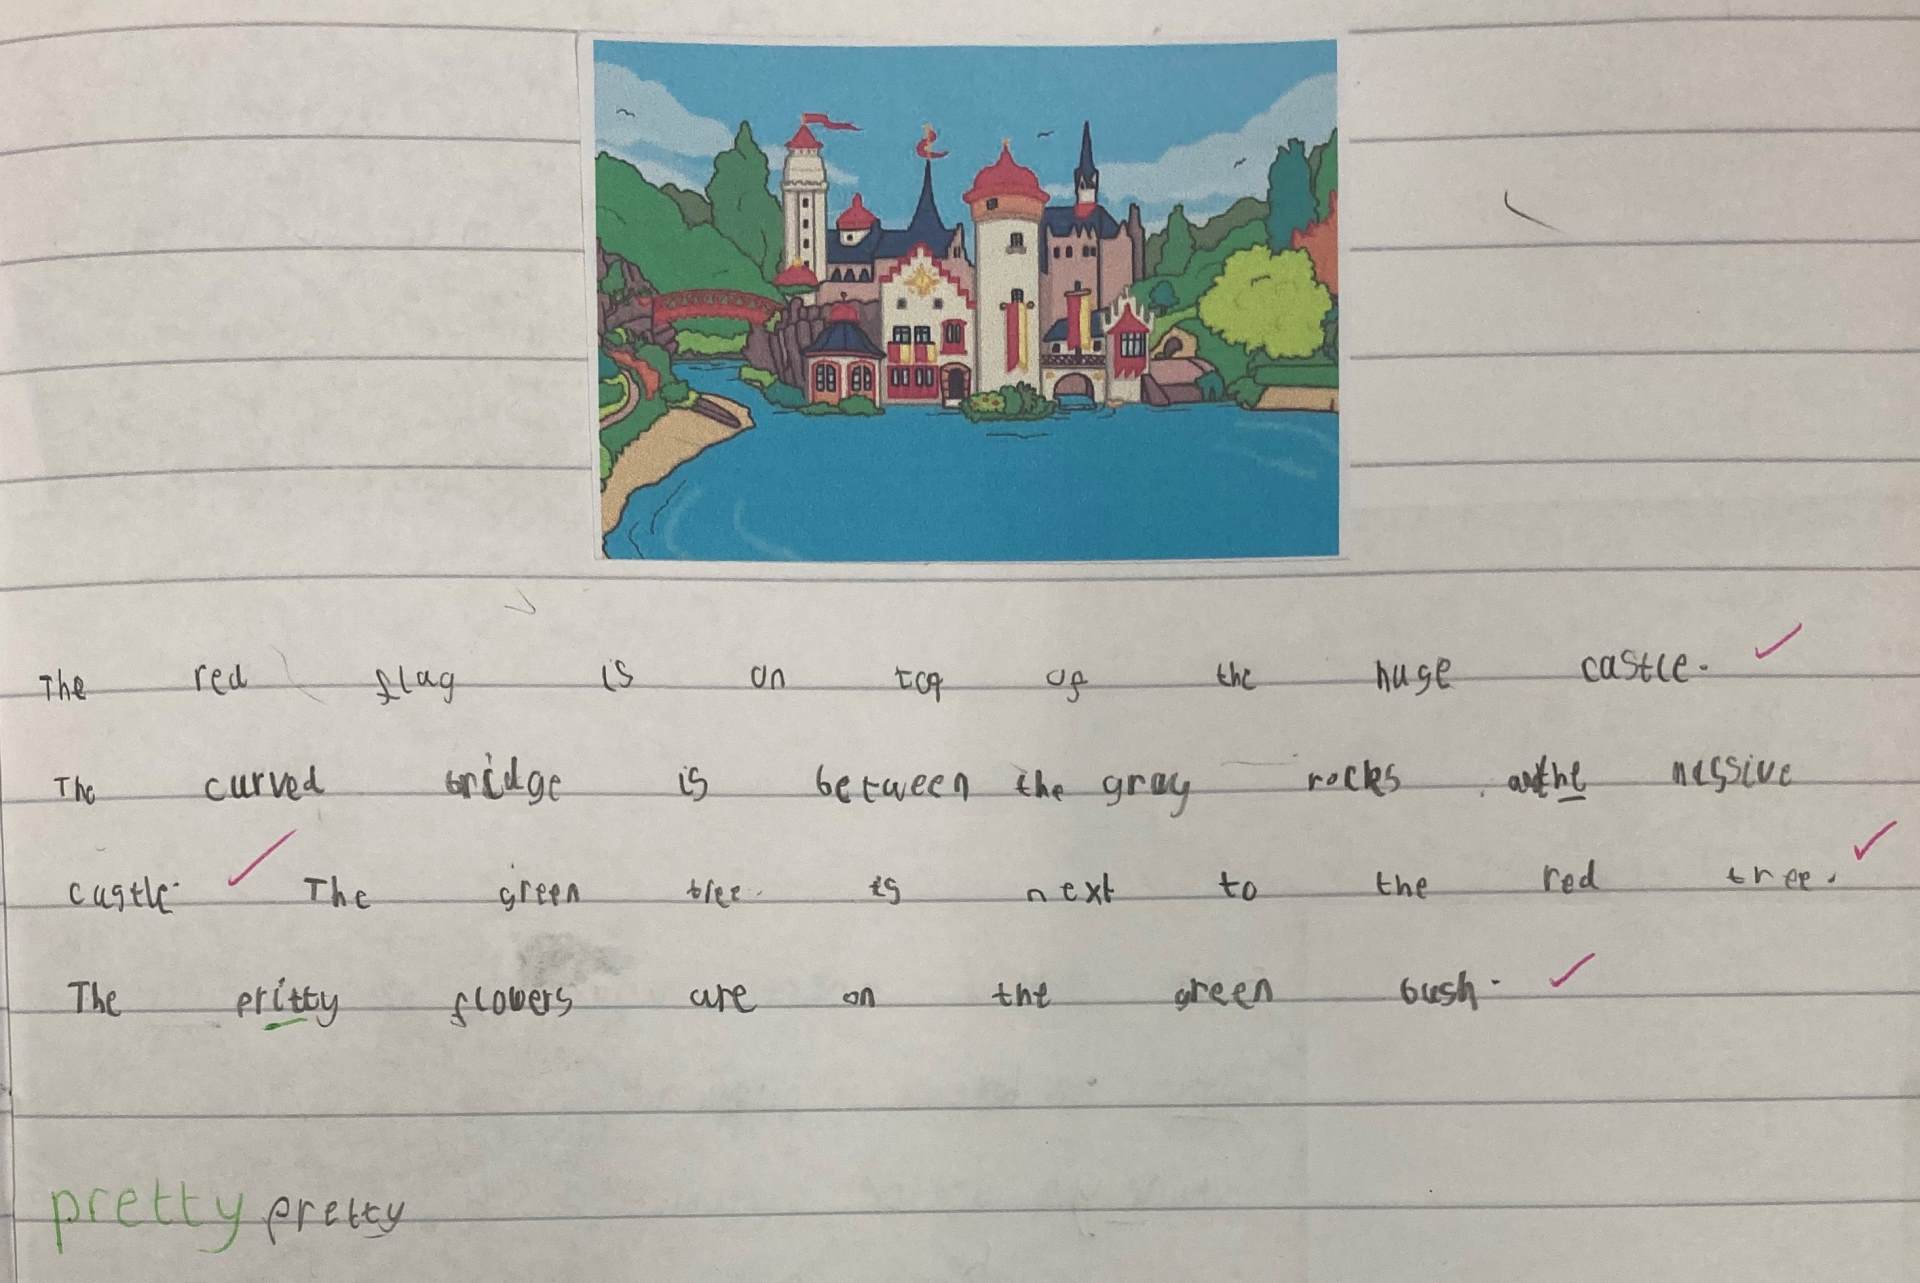 The red flag is on top of the huge castle.
The curved bridge is between the gray rocks the massive
castle. The green tree is next to the red tree.
The pritty flowers are on the green bush.
pretty pretty